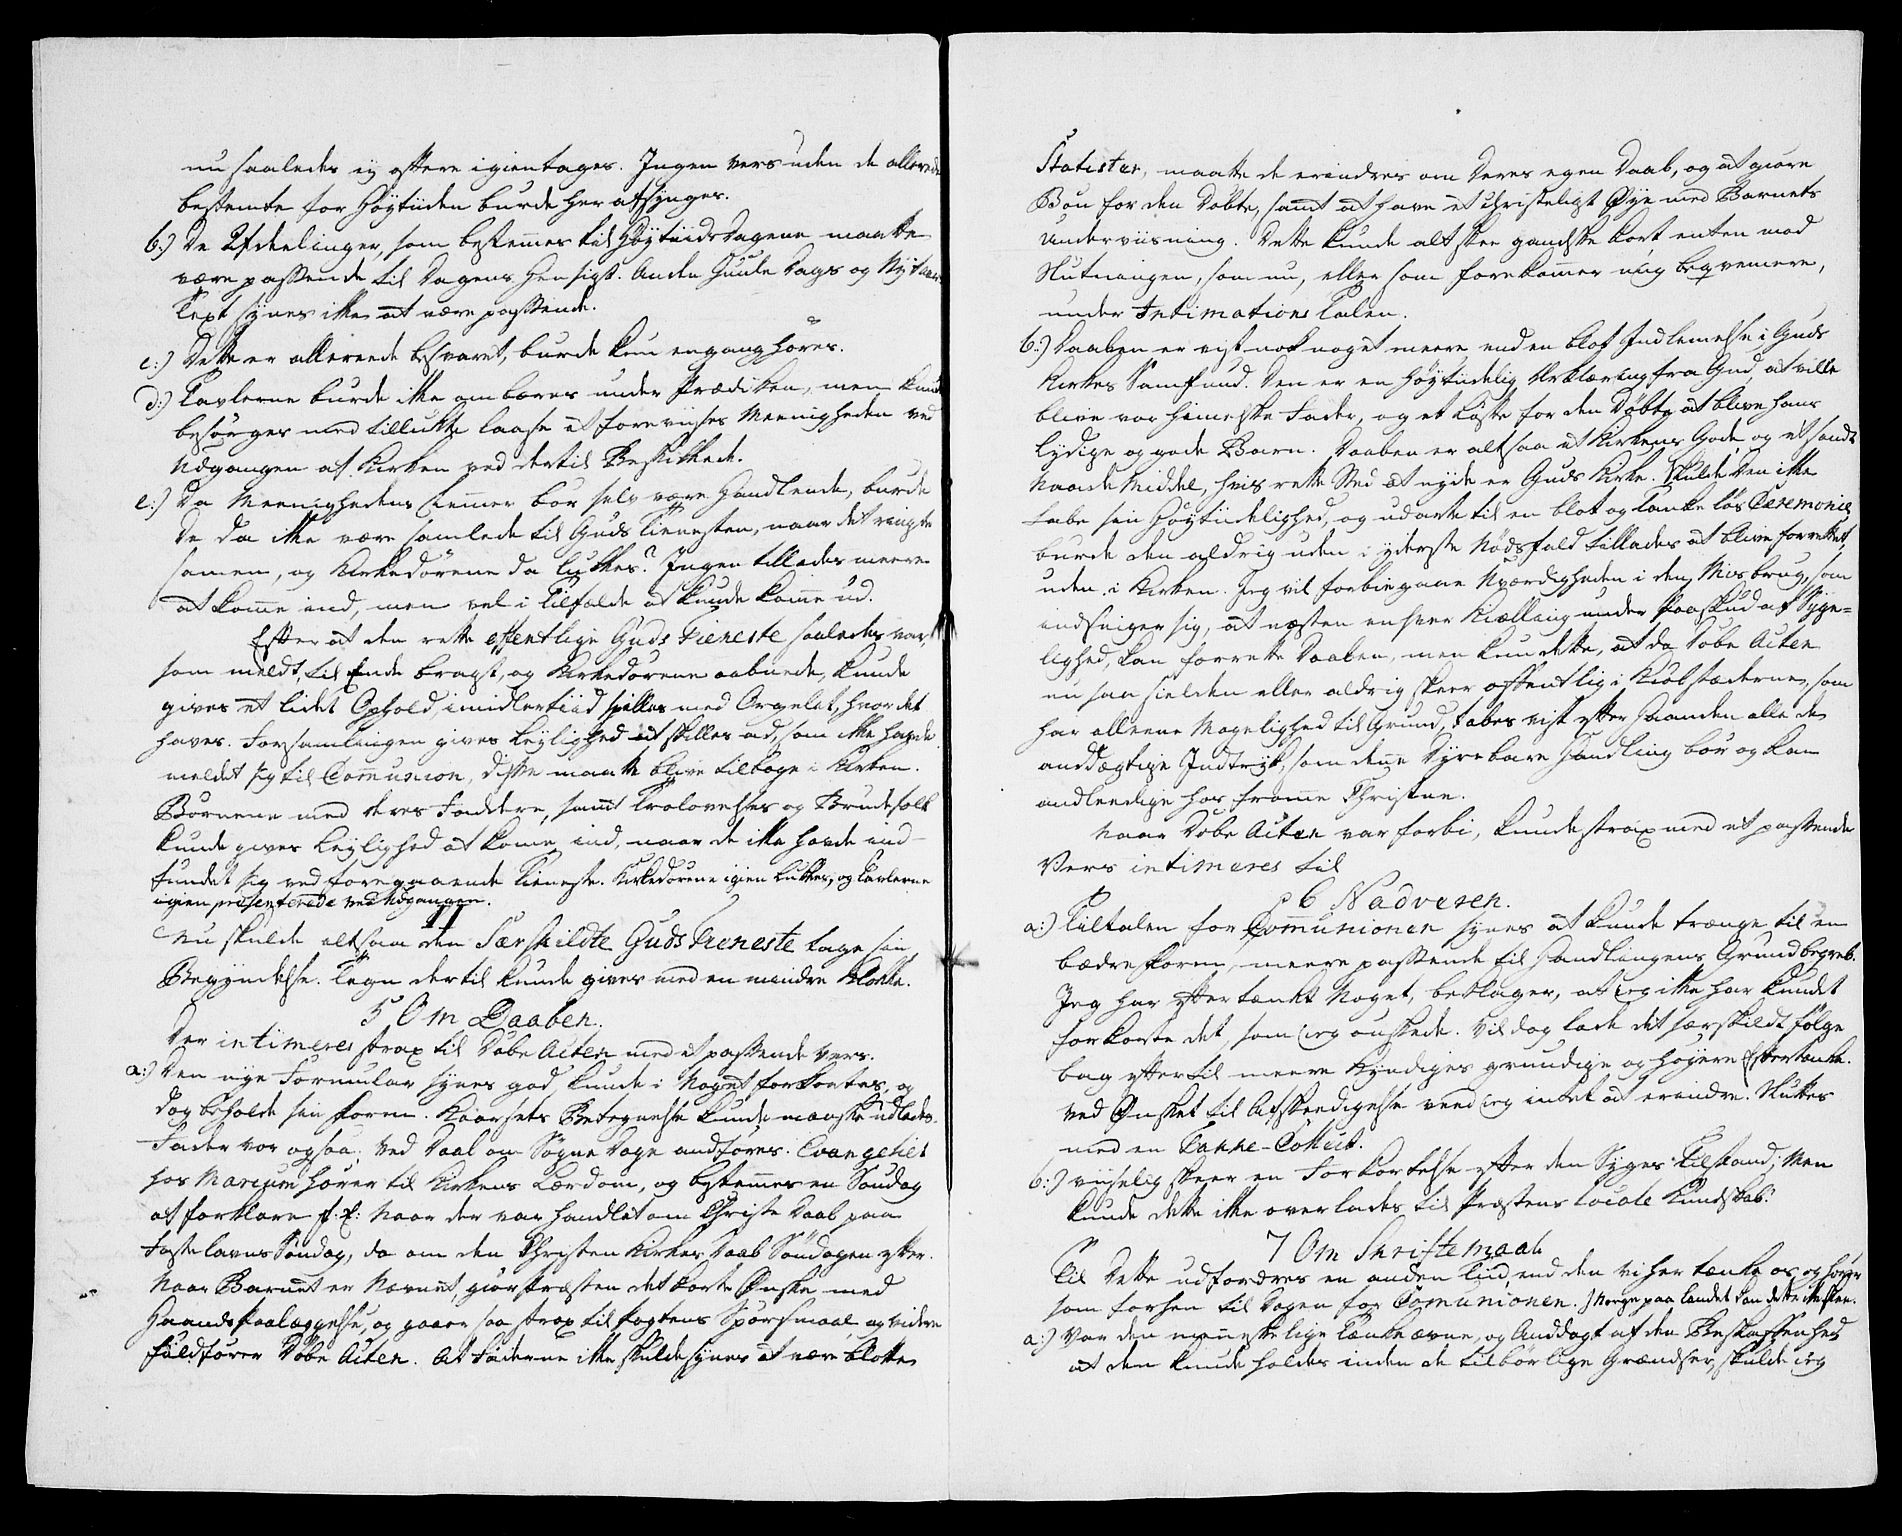 nu saaledes ey oftere igientages. Ingen vers uden de allerede
bestemte for Høytiiden burde her afsynges.
b:) De Afdeelinger, som bestemmes til Høytiids Dagene maatte
være passende til Dagens Hensigt. Anden Juule Dags og Nytaars
Text synes ikke at være passende.
c:) Dette er allerede besvaret, burde kun engang høres.
d:) Tavlerne burde ikke ombæres under Prædiken, men kunde
besørges med tillukte laase at foreviises Meenigheden ved
Udgangen af Kirken ved dertil Beskikkede.
e:) Da Meenighedens Lemmer bør selv være Handlende, burde
De da ikke være samlede til Guds Tienesten, naar det ringte
samen, og Kirkedørene da lukkes? Ingen tillades meere
at komme ind, men vel i Tilfælde at kunde komme ud.
Efter at den rette offentlige Guds Tieneste saaledes var,
som meldt, til Ende bragt, og Kirkedørene aabnede, kunde
gives et lidet Ophold, imidlertiid spilles med Orgelet, hvor det
haves. Forsamlingen gives Leylighed at skilles ad, som ikke havde
meldet sig til Communion, disse maatte blive tilbage i Kirken.
Børnene med deres Faddere, samt Trolovelses og Brudefolk
kunde gives Leylighed at komme ind, naar de ikke havde ind-
fundet sig ved foregaaende Tieneste. Kirkedørene igien lukkes, og Tavlerne
igien præsenterede ved Udgangen.
II
Nu skulde altsaa den Særskildte Guds Tieneste tage sin
Begyndelse. Tegn dertil kunde gives med en mindre Klokke.
5 Om Daaben.
Der intimeres strax til Døbe Acten med et passende vers.
a:) Den nye Formular synes god, kunde i Noget forkortes, og
dog beholde sin form. Kaarsets Betegnelse kunde maaske udlades.
Fader vor ogsaa. Ved Daab om Søgne Dage andføres. Evangeliet
hos Marcum hører til Kirkens Lærdom, og bestemmes en Søndag
at forklare f: E: Naar der var handlet om Christi Daab paa
Fastelavns Søndag, da om den Christen Kirkes Daab Søndagen efter.
Naar Barnet er Nævnet, giør Præsten det korte Ønske med
Haands Paalæggelse, og gaaer saa strax til Pagtens Spørsmaal, og videre
fuldfører Døbe Acten. At Fadderne ikke skulde synes at være blotte
Statister, maatte de erindres om Deres egen Daab, og at giøre
Bøn for den Døbte, samt at have et Christeligt Øye med Barnets
Underviisning. Dette kunde alt skee gandske kort enten mod
Slutningen, som nu, eller som forekommer mig beqvemere,
under Intimations Talen.
b:) Daaben er vist nok noget meere end en blot Indlemelse i Guds
Kirkes Samfund. Den er en høytiidelig Erklæring fra Gud, at ville
blive vor himelske Fader, og et Løfte for den Døbte at blive hans
lydige og gode Barn. Daaben er altsaa et Kirkens Gode, og et sandt
Naade Middel, hvis rette Sted at nyde er Guds Kirke. Skulde Den ikke
tabe sin Høytiidelighed, og udarte til en blot og Tanke løs Ceremonie,
burde den aldrig uden i yderste Nødsfald tillades at blive forrettet,
uden i Kirken. Jeg vil forbiegaae Uværdigheden i den Misbrug, som
indsniger sig, at næsten enhver Kiælling under Paaskud af Syge-
lighed, kan forrette Daaben, men kun dette, at da Døbe Acten
nu saa sielden eller aldrig skeer offentlig i Kiøbstæderne, som
har alleene Magelighed til Grund, tabes vist efter Haanden alle de
anddægtige Indtryk, som denne Dyrebare Handling bør og kan
andlendige hos fromme Christne.
Naar Døbe Acten var forbi, kunde strax med et passende
Vers intimeres til
6 Nadveren.
a:) Tiltalen for Communionen synes at kunde trænge til en
bædre form, meere passende til Handlingens Grundbegreb.
Jeg har eftertænkt Noget, beklager, at jeg ikke har kundet
forkorte det, som jeg ønskede. Vil dog lade det særskildt følge
bag efter til meere Kyndiges grundige og høyere Eftertanke.
Ved Ønsket til Afskeedigelse veed jeg intet at erindre. Sluttes
med en Takke-Collect.
b:) viiselig skeer en Forkortelse efter den Syges Tilstand; Men
kunde dette ikke overlades til Præstens locale Kundskab?
7 Om Skriftemaal.
Til Dette udfordres en anden Tiid, end den vi her tænke os, og hører
som forhen til Dagen for Communionen. I Norge paa Landet kan dette ikke skee.
a:) Var den menneskelige Tænkeævne, og Anddagt af den Beskaffenhed
at den kunde holdes inden de tilbørlige Grændser, skulde jeg